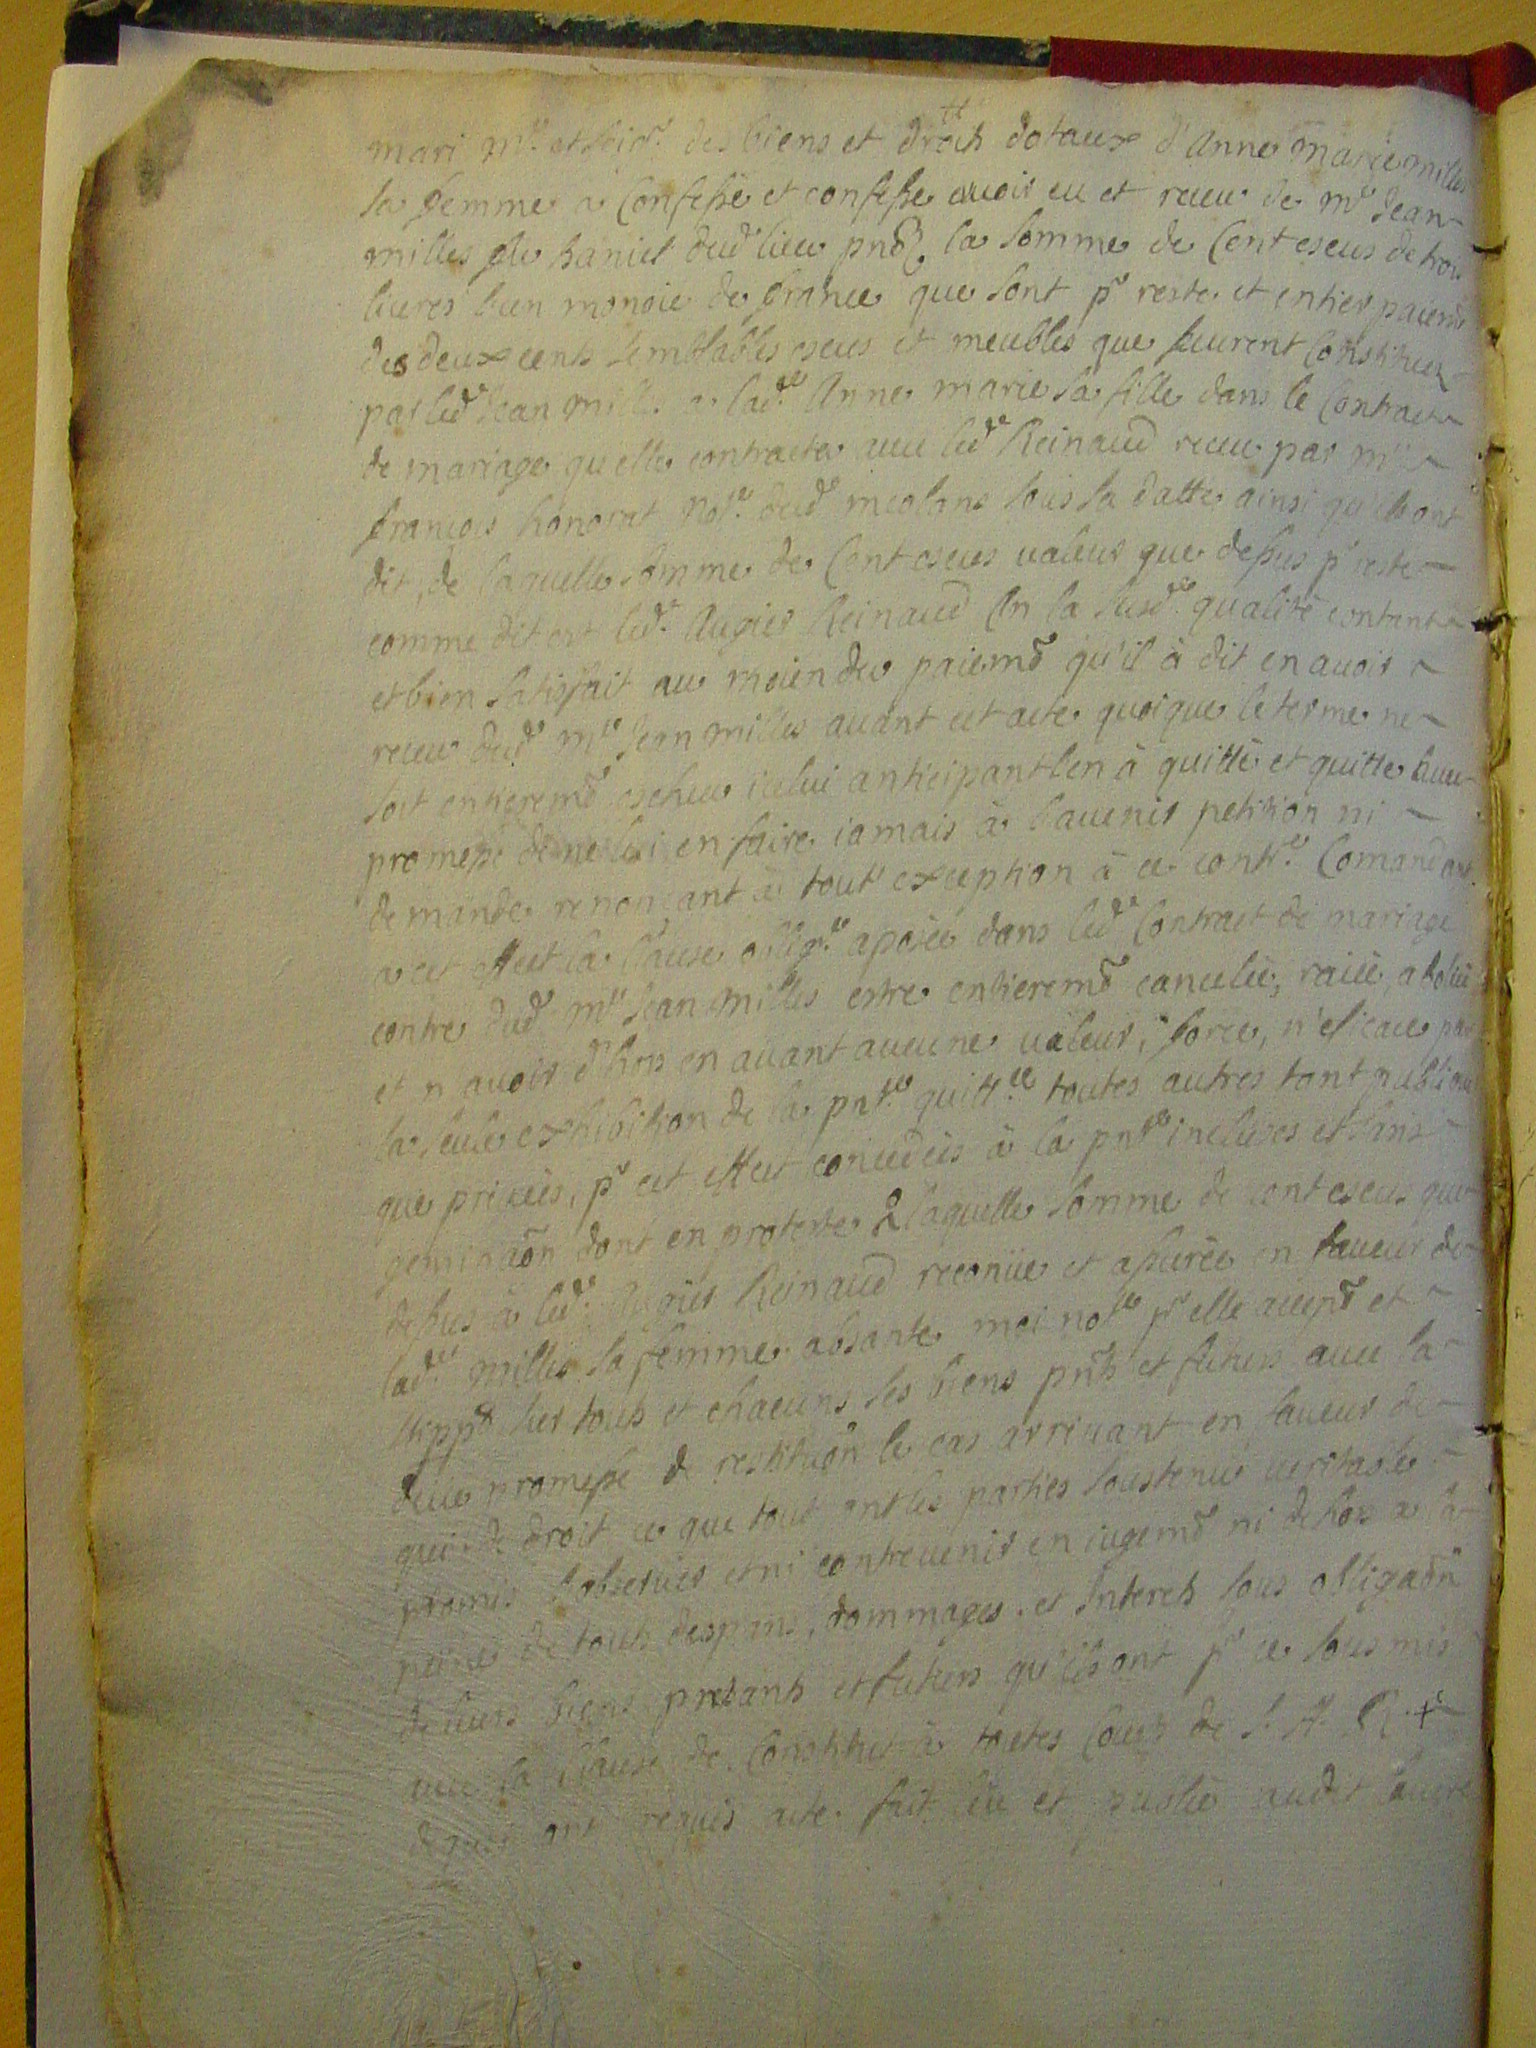 mari m.e et seig.r des biens et droits dotaux d'Anne marie milles
sa femme a confessé et confesse avoir eu et receu de m.e Jean
milles dud.t lieu pnt la somme de Cent escus de trois
livres bon monoie de france que sont p.r reste et entier paiemt
des deux cents semblables escus et meubles que feurent Constitués
par led.t Jean mille a lad.te Anne marie sa fille dans le Contract
de mariage qu'elle contracta avec led.t Reinaud receu par m.e
françois honorat Not.e dud.t meolans sous sa datte ainsi qu'ils ont
dit, de laquelle somme de Cent escus valeur que dessus p.r reste
comme dit est led.t Augier Reinaud En la susd.te qualité content
et bien satisfait au moien du paiemt qu'il à dit en avoir
receu dud.t m.e Jean milles avant cet acte quoique le terme ne
soit entieremt escheu icelui anticipant l'en à quitté et quitte avec
promesse de ne lui en faire iamais à l'avenir petition ni
demande renonçant à tout exception à ce contr.e Comandant
a cet effect la clause oblig.re aposée dans led.t Contract de mariage
contre dud.t m.e Jean Milles estre entieremt cancelée, raiée, abolie
et n avoir d'hors en avant aucune valeur, force, n'eficace par
la seule exhibition de la pnt.e quitt.ce toutes autres tant publiques
que privées, p.r cet effect concedées à la pnt.e incluses et sans
geminaon dont en proteste laquelle somme de cent escus que
dessus à led.t Augier Reinaud reconüe et assurée en faveur de
lad.te Milles sa femme absante moi not.e p.r elle acceptt et
stippt sur touts et chacuns ses biens pnts et futurs avec la
deue promesse de restituon le cas arrivant en faveur de
qui de droit ce que tout ont les parties soustenu veritable
promis l'observer et ni contrevenir en iugemt ni dehors a la
peine de touts despans, dommages et Interets sous obligaon
de leurs biens presants et futurs qu'ils ont p.r ce sousmis
avec la clause de Constitut à toutes Cours de S. A. R. +
de quoi ont requis acte. fait leu et publié audit